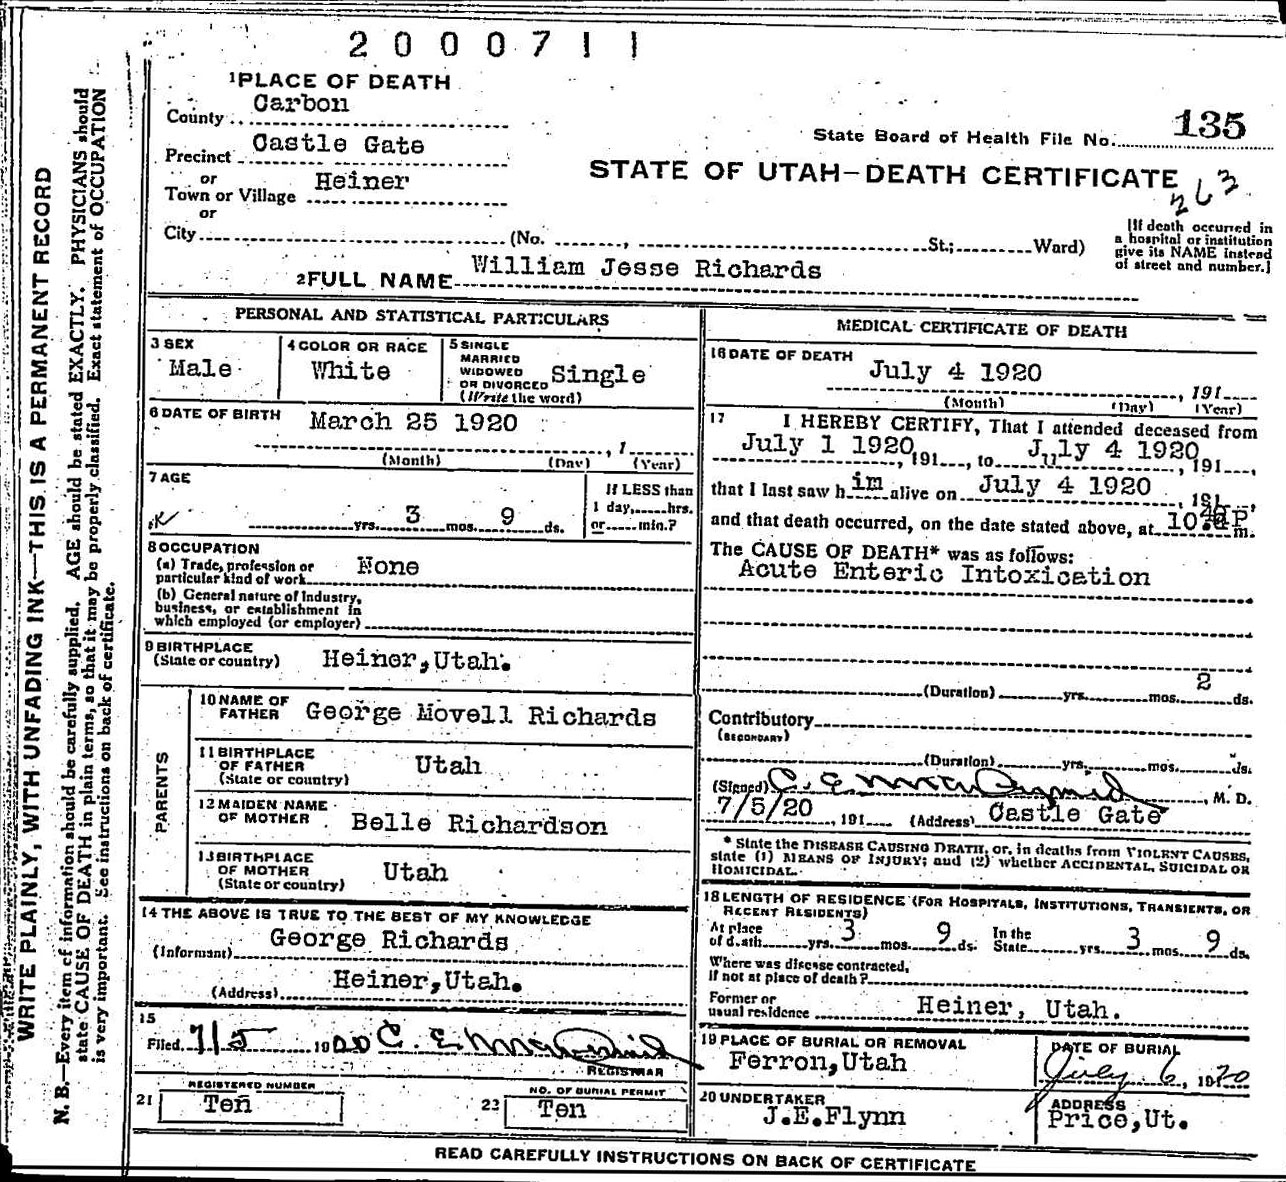 2000711
1 PLACE OF DEATH
County Carbon
State Board of Health File No. 135
Precinct Castle Gate
STATE OF UTAH—DEATH CERTIFICATE
263
or
Town or Village Heiner
or
City (No. , St.; Ward)
[If death occurred in
a hospital or institution
give its NAME instead
of street and number.]
2 FULL NAME William Jesse Richards
PERSONAL AND STATISTICAL PARTICULARS
3 SEX
Male
4 COLOR OR RACE
White
5 SINGLE
MARRIED
WIDOWED
OR DIVORCED
(Write the word)
Single
6 DATE OF BIRTH March 25 1920
, 1
(Month) (Day) (Year)
7 AGE
yrs. 3 mos. 9 ds.
If LESS than
1 day, hrs.
or min.?
8 OCCUPATION
(a) Trade, profession or
particular kind of work None
(b) General nature of Industry,
business, or establishment in
which employed (or employer)
9 BIRTHPLACE
(State or country) Heiner,Utah.
PARENTS
10 NAME OF
FATHER George Movell Richards
11 BIRTHPLACE
OF FATHER
(State or country) Utah
12 MAIDEN NAME
OF MOTHER Belle Richardson
13 BIRTHPLACE
OF MOTHER
(State or country) Utah
14 THE ABOVE IS TRUE TO THE BEST OF MY KNOWLEDGE
(Informant) George Richards
(Address) Heiner,Utah.
15
Filed 7/5 1920 C. E.
REGISTRAR
REGISTERED NUMBER
21 Ten
NO. OF BURIAL PERMIT
22 Ten
MEDICAL CERTIFICATE OF DEATH
16 DATE OF DEATH
July 4 1920
, 191
(Month) (Day) (Year)
17 I HEREBY CERTIFY, That I attended deceased from
July 1 1920, 191 , to July 4 1920, 191 ,
that I last saw him alive on July 4 1920, 191 ,
and that death occurred, on the date stated above, at 10 P. m.
The CAUSE OF DEATH* was as follows:
Acute Enteric Intoxication
(Duration) yrs. mos. 2 ds.
Contributory
(SECONDARY)
(Duration) yrs. mos. ds.
(Signed) C. E. , M. D.
7/5/20 , 191 (Address) Castle Gate
* State the DISEASE CAUSING DEATH, or, in deaths from VIOLENT CAUSES,
state (1) MEANS OF INJURY; and (2) whether ACCIDENTAL, SUICIDAL OR
HOMICIDAL.
18 LENGTH OF RESIDENCE (FOR HOSPITALS, INSTITUTIONS, TRANSIENTS, OR
RECENT RESIDENTS)
At place
of death yrs. 3 mos. 9 ds. In the
State yrs. 3 mos. 9 ds.
Where was disease contracted,
If not at place of death?
Former or
usual residence Heiner, Utah.
19 PLACE OF BURIAL OR REMOVAL
Ferron,Utah
DATE OF BURIAL
July 6, 1920
20 UNDERTAKER
J.E.Flynn
ADDRESS
Price,Ut.
READ CAREFULLY INSTRUCTIONS ON BACK OF CERTIFICATE
WRITE PLAINLY, WITH UNFADING INK—THIS IS A PERMANENT RECORD
N. B.—Every item of information should be carefully supplied. AGE should be stated EXACTLY. PHYSICIANS should
state CAUSE OF DEATH in plain terms, so that it may be properly classified. Exact statement of OCCUPATION
is very important. See instructions on back of certificate.